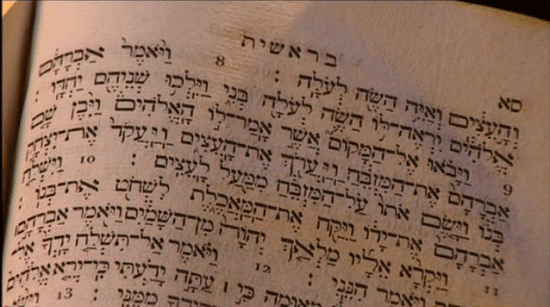 בראשית
סא
וְהָעֵצִים וְאַיֵּה הַשֶּׂה לְעֹלָה׃ 8 וַיֹּאמֶר אַבְרָהָם
אֱלֹהִים יִרְאֶה־לּוֹ הַשֶּׂה לְעֹלָה בְּנִי וַיֵּלְכוּ שְׁנֵיהֶם יַחְדָּו׃
9 וַיָּבֹאוּ אֶל־הַמָּקוֹם אֲשֶׁר אָמַר־לוֹ הָאֱלֹהִים וַיִּבֶן שָׁם
אַבְרָהָם אֶת־הַמִּזְבֵּחַ וַיַּעֲרֹךְ אֶת־הָעֵצִים וַיַּעֲקֹד אֶת־יִצְחָק
בְּנוֹ וַיָּשֶׂם אֹתוֹ עַל־הַמִּזְבֵּחַ מִמַּעַל לָעֵצִים׃ 10 וַיִּשְׁלַח
אַבְרָהָם אֶת־יָדוֹ וַיִּקַּח אֶת־הַמַּאֲכֶלֶת לִשְׁחֹט אֶת־בְּנוֹ׃
11 וַיִּקְרָא אֵלָיו מַלְאַךְ יְהוָה מִן־הַשָּׁמַיִם וַיֹּאמֶר אַבְרָהָם
וַיֹּאמֶר הִנֵּנִי׃ 12 וַיֹּאמֶר אַל־תִּשְׁלַח יָדְךָ אֶל
מְאוּמָה כִּי עַתָּה יָדַעְתִּי כִּי־יְרֵא אֱלֹהִים
מִמֶּנִּי׃ 13